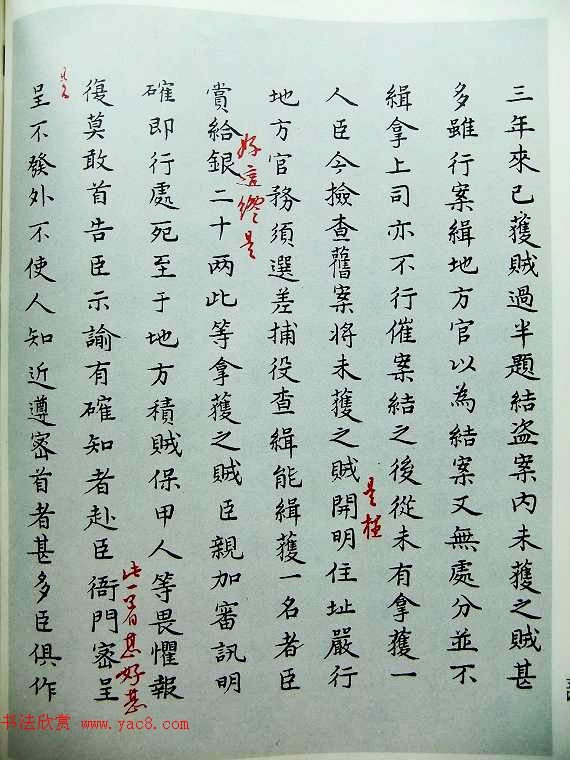 三年來已獲賊過半題結盜案內未獲之賊甚
多雖行案緝地方官以為結案又無處分並不
緝拿上司亦不行催案結之後從未有拿獲一
人臣今撿查舊案將未獲之賊開明住址嚴行
是極
地方官務須選差捕役查緝能緝獲一名者臣
好這纔是
賞給銀二十两此等拿獲之賊臣親加審訊明
確即行處死至于地方積賊保甲人等畏懼報
此一着甚好甚
復莫敢首告臣示諭有確知者赴臣衙門密呈
呈不發外不使人知近遵密首者甚多臣俱作
书法欣赏 www.yac8.com